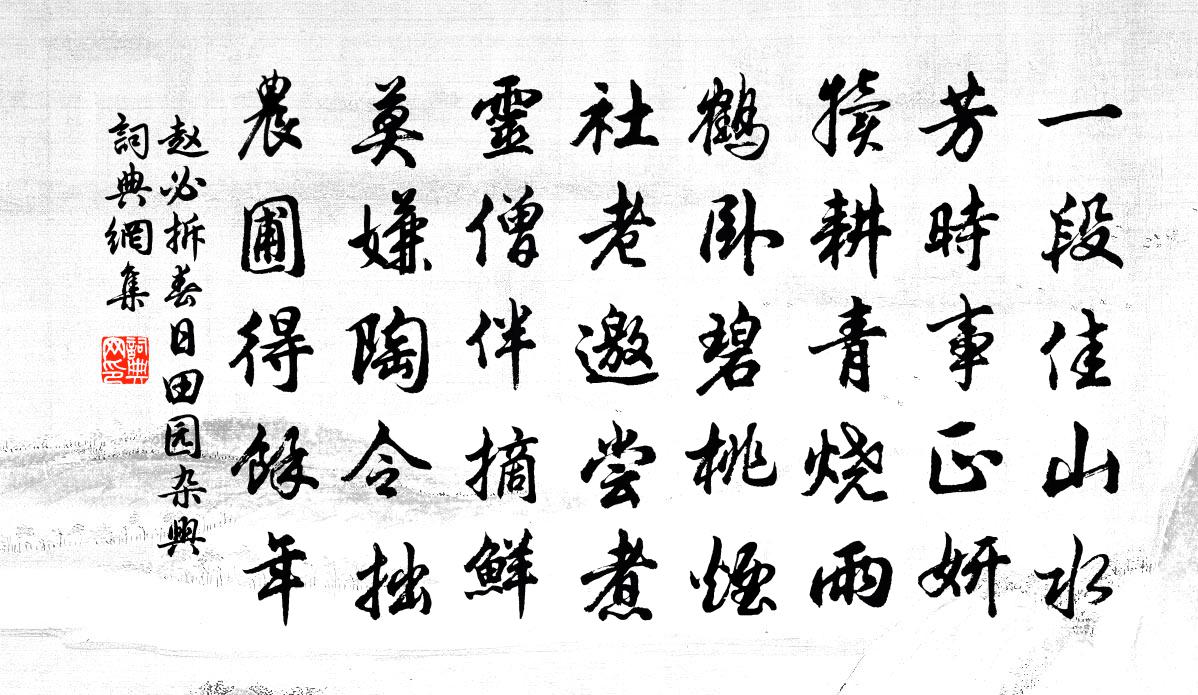 一段佳山水
芳時事正妍
犢耕青燒雨
鶴卧碧桃煙
社老邀嘗煮
靈僧伴摘鮮
莫嫌陶令拙
農圃得餘年
赵必拆春日田园杂興
詞典網集
詞典网印